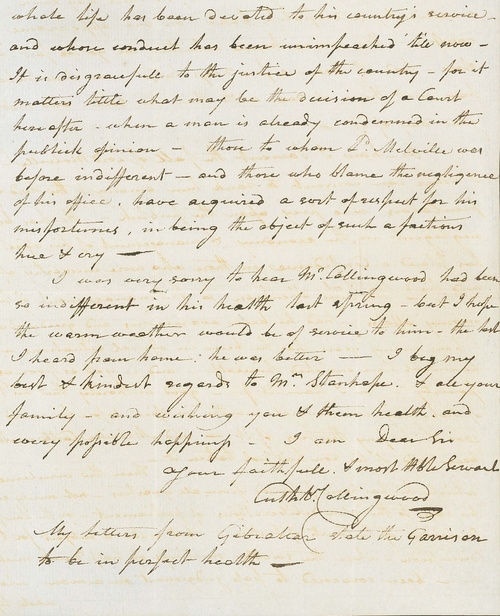 whole life has been devoted to his country's service -
and whose conduct has been unimpeached till now -
It is disgracefull to the justice of the country - for it
matters little what may be the decision of a Court
hereafter - when a man is already condemned in the
publick opinion - those to whom Ld. Melville was
before indifferent - and those who blame the negligence
of his office, have acquired a sort of respect for his
misfortunes, in being the object of such a factious
hue & cry —
I was very sorry to hear Mr. Collingwood had been
so indifferent in his health last Spring - but I hope
the warm weather would be of service to him - the last
I heard from home: he was better — I beg my
best & kindest regards to Mrs. Stanhope, & all your
family - and wishing you & them health, and
every possible happiness - I am Dear Sir
Your faithfull & most Hble Servant
Cuthd. Collingwood
My letters from Gibraltar state the Garrison
to be in perfect health —